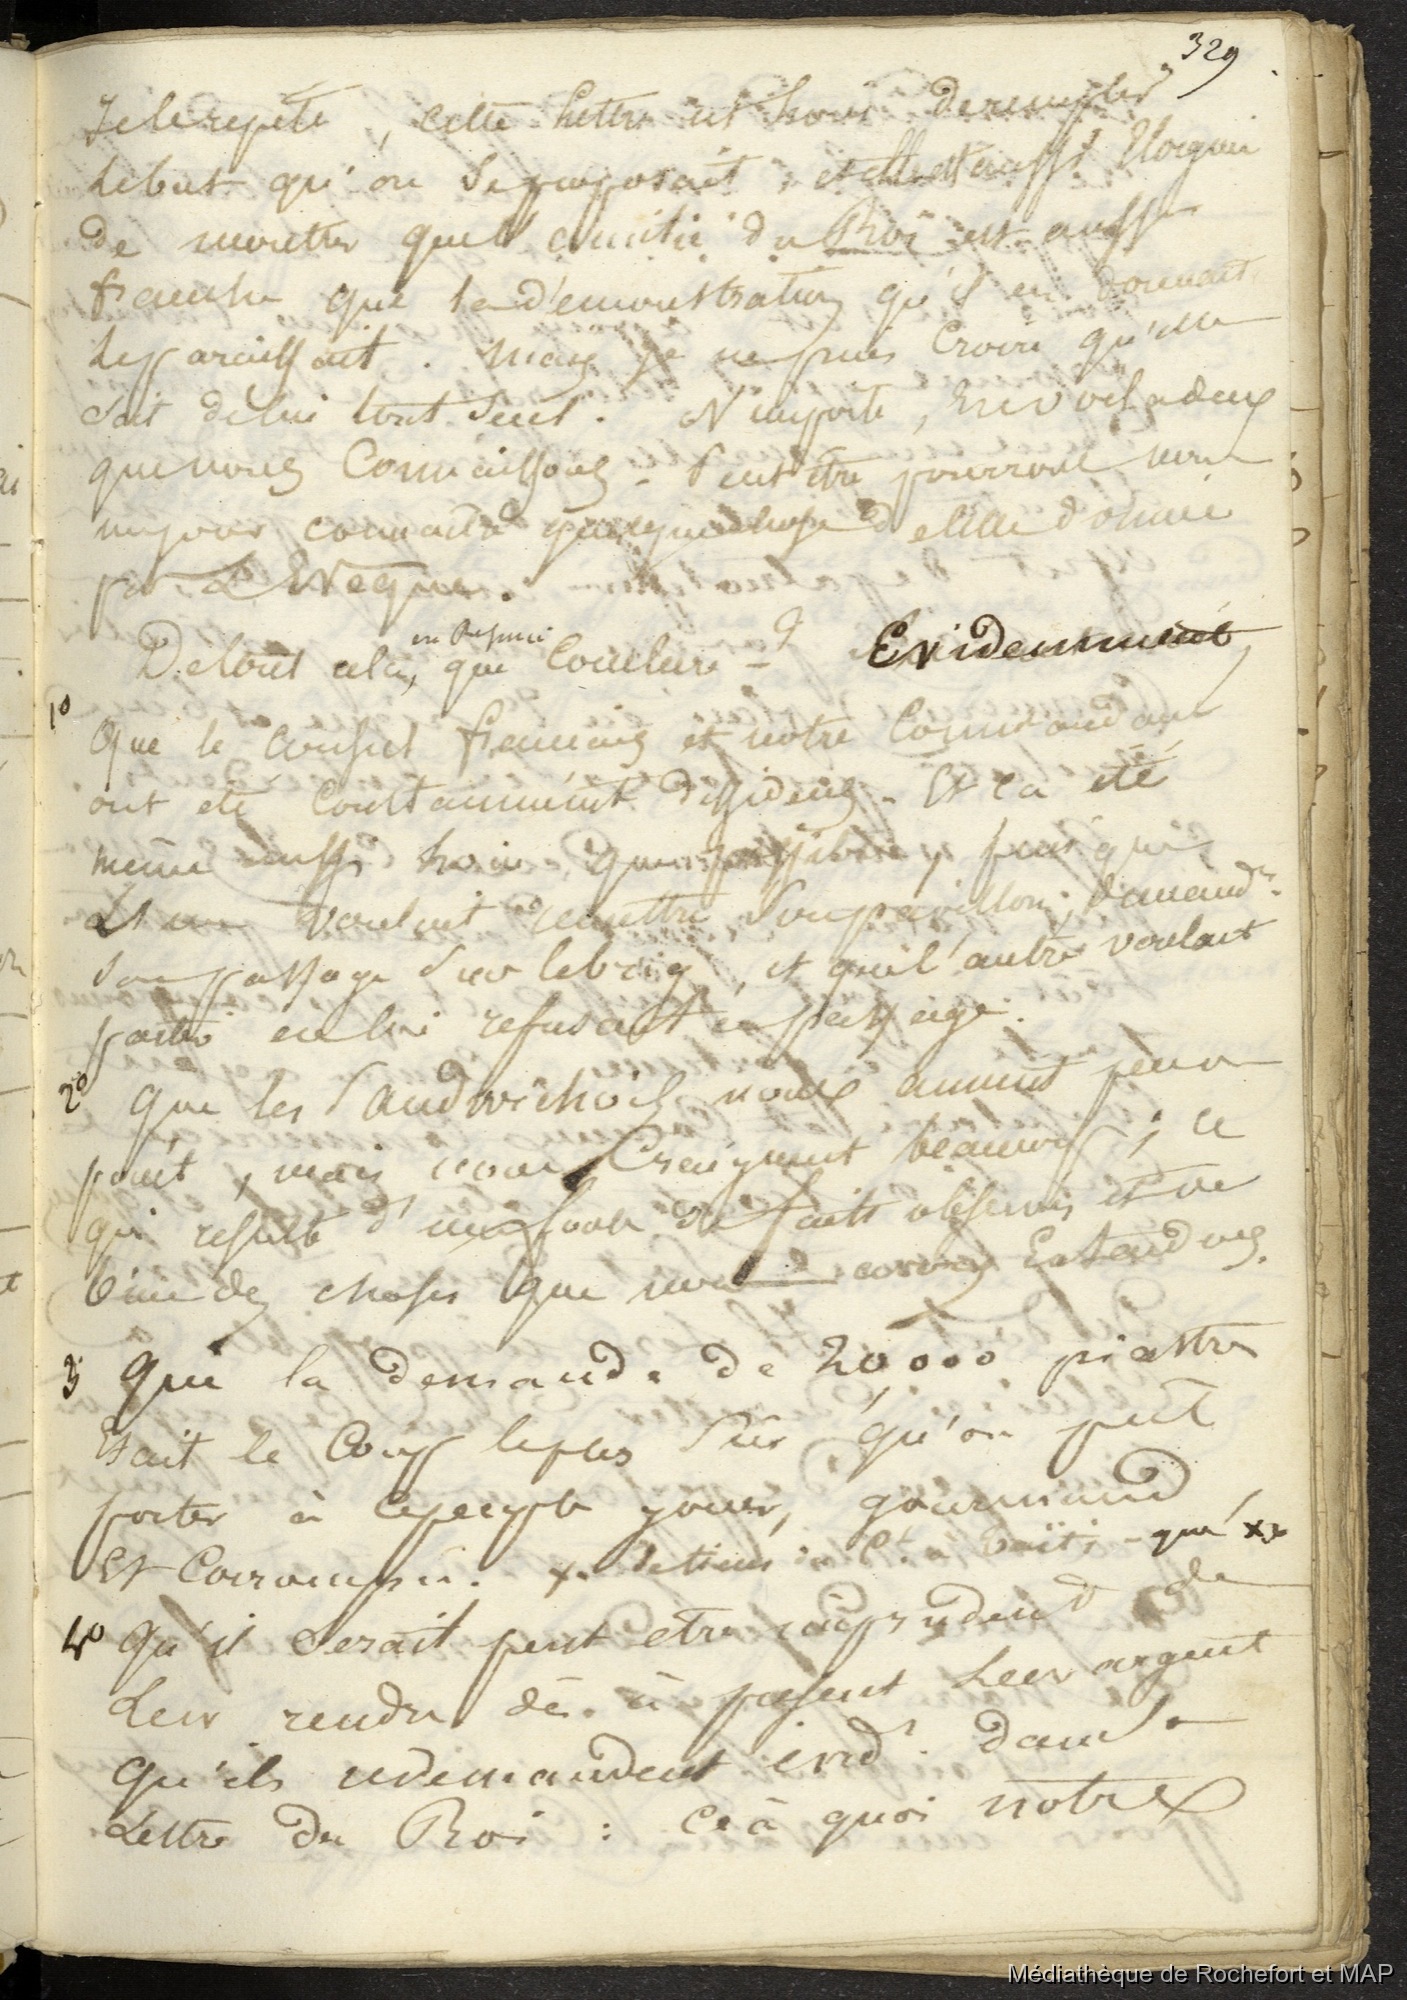 329
Je le repète, cette lettre est loin de remplir
le but qu'on se proposait; et elle est aussi éloignée
de montrer que l'amitié du Roi est aussi
franche que la démonstration qu'il en donnait
le paraissait. Mais je ne puis croire qu'elle
soit de lui tout seul. N'importe, en voila deux
que nous connaissons. Peut être pourrons nous
un jour connaitre quelque chose de celle donnée
par L'Eveque.
en Resumé
De tout cela, que conclure? Evidemment
1º
Que le consul français et notre Commandant
ont été constamment dissidens. Et ca été
même aussi loin que possible, puisque
L'un voulait remettre son pavillon, demandr.
son passage sur le brig, et que l'autre voulait
partir en lui refusant ce passage.
2º que les Sandwichois nous aiment peu ou
point, mais nous craignent beaucoup; ce
qui resulte d'une foule de faits observés et
bien des choses que nous avons entendues.
3º que la demande de 20,000 piastres
était le coup le plus sûr qu'on put
porter à ce peuple gourmand
Et Corrompu. x de tiens du Ct. à Taïti - que x
4º qu'il serait peut etre imprudent de
Leur rendre dès à présent leur argent
qu'ils redemandent indt. dans la
Lettre du Roi: Ce à quoi notre
Médiathèque de Rochefort et MAP